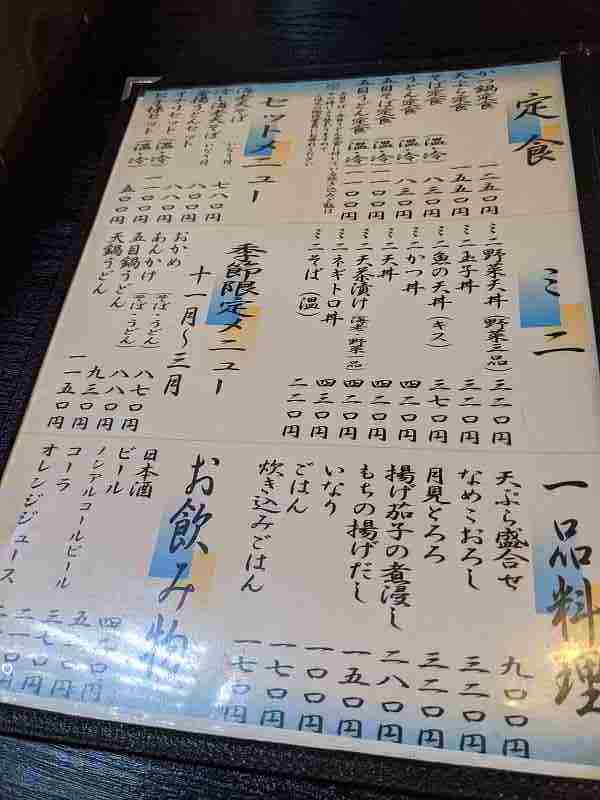 定食
かつ鍋定食 一二五〇円
天ぷら定食 一五五〇円
そば定食（温・冷） 八三〇円
うどん定食（温・冷） 八三〇円
五目そば定食（温・冷） 一一〇〇円
五目うどん定食（温・冷） 一一〇〇円
セットメニュー
七八〇円
八八〇円
八八〇円
（温・冷） 一一〇〇円
（温・冷） 五〇〇円
ミニ
ミニ野菜天丼（野菜三品） 三二〇円
ミニ玉子丼 三二〇円
ミニ魚の天丼（キス） 三七〇円
ミニかつ丼 四二〇円
ミニ天丼 四二〇円
ミニ天茶漬け（海老・野菜一品） 四二〇円
ミニネギトロ丼 四三〇円
ミニそば（温） 二二〇円
季節限定メニュー
十一月〜三月
おかめ（そば・うどん） 八七〇円
あんかけ（そば・うどん） 八八〇円
五目鍋うどん 九三〇円
天鍋うどん 一一五〇円
一品料理
天ぷら盛合せ 九〇〇円
なめこおろし 三二〇円
月見とろろ 三二〇円
揚げ茄子の煮浸し 二八〇円
もちの揚げだし 一五〇円
いなり 一〇〇円
ごはん 一七〇円
炊き込みごはん 一七〇円
お飲み物
日本酒
ビール
ノンアルコールビール 三七〇円
コーラ 二一〇円
オレンジジュース